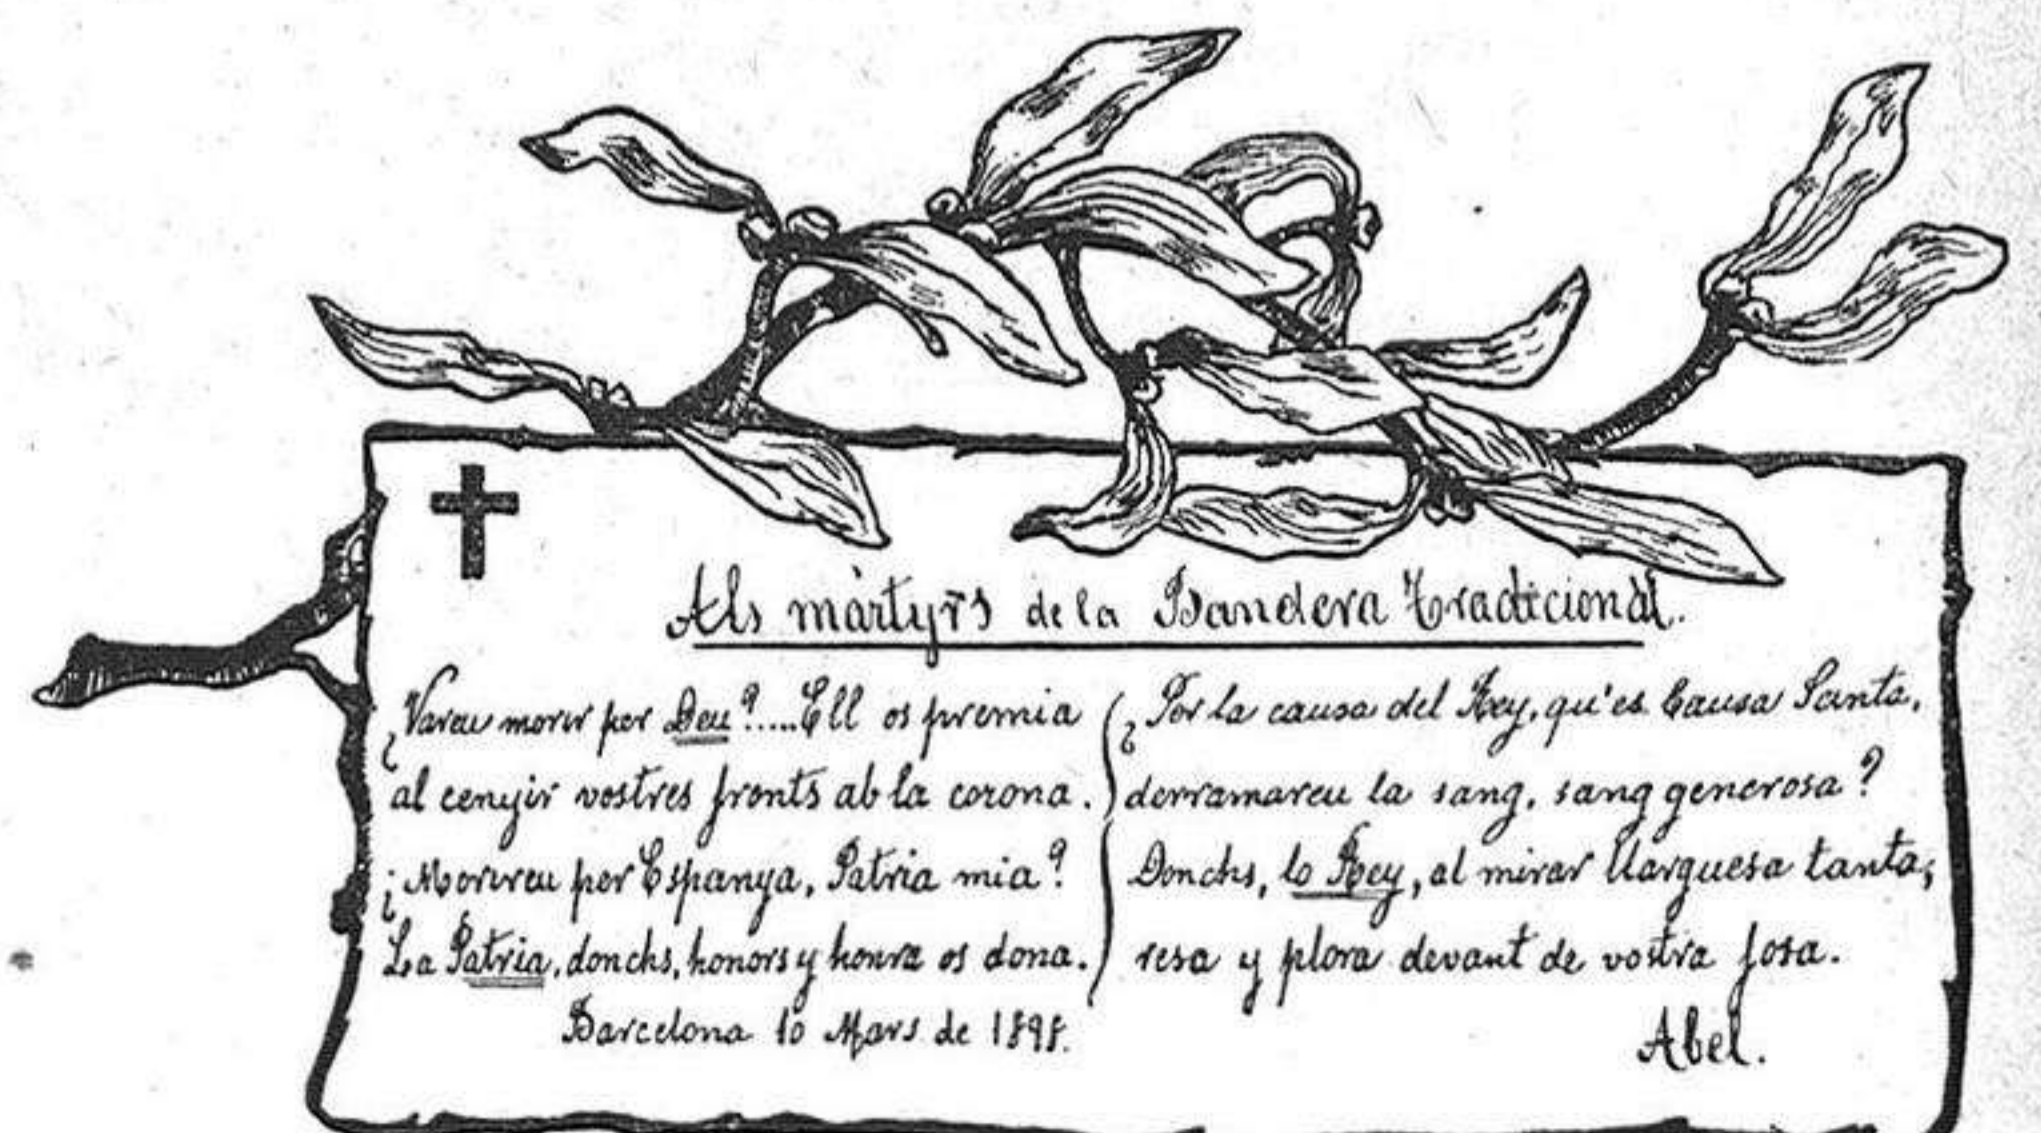 Als màrtyrs de la Bandera Tradicional.
¿Vareu morir per Deu?.....Ell os premia
al cenyir vostres fronts ab la corona.
¿Morireu per Espanya, Patria mia?
La Patria, donchs, honors y honra os dona.
Barcelona 10 Mars de 1898.
¿Per la causa del Rey, qu'es Causa Santa,
derramareu la sang, sang generosa?
Donchs, lo Rey, al mirar llarguesa tanta,
resa y plora devant de vostra fosa.
Abel.